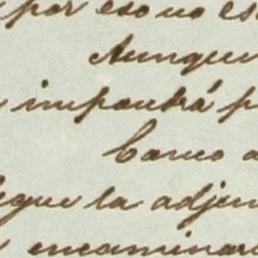 por eso no es
Aunque
impondrá p
Como a
egue la adjun
encaminar